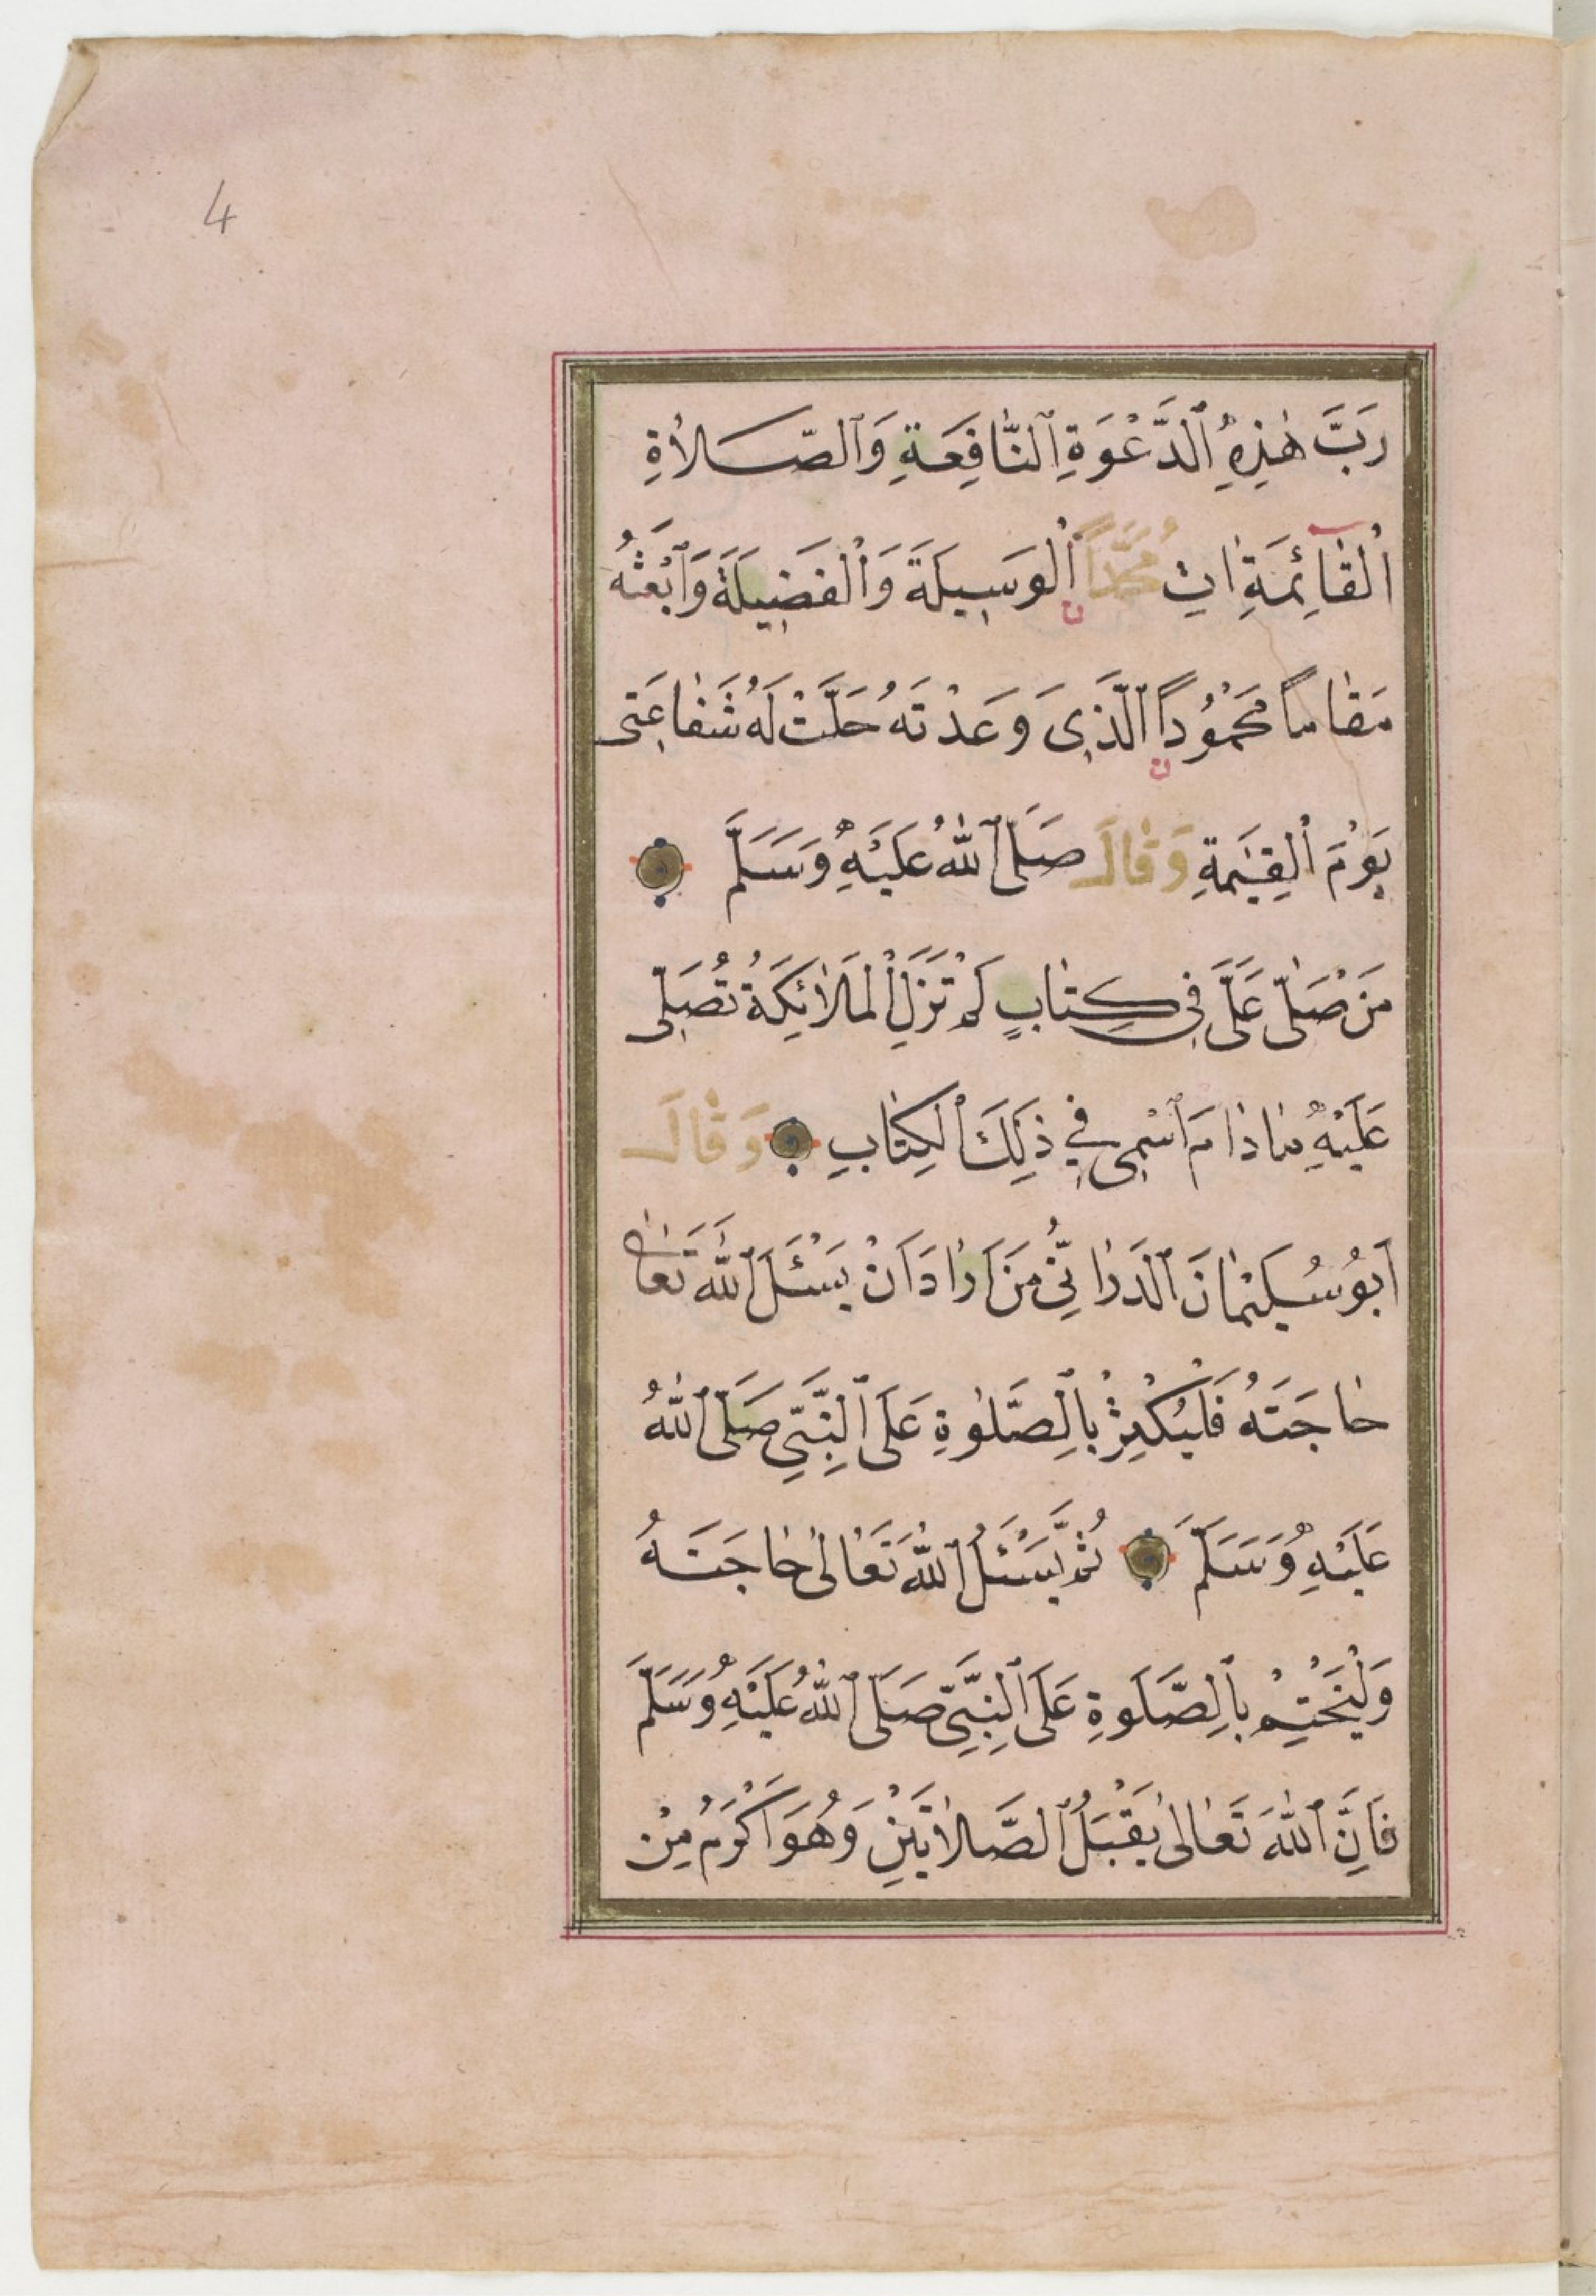 4
رَبَّ هٰذِهِ ٱلدَّعْوَةِ ٱلنَّافِعَةِ وَٱلصَّلاٰةِ
ٱلْقَآئِمَةِ اٰتِ مُحَمَّدًا ٱلْوَسِيلَةَ وَٱلْفَضِيلَةَ وَٱبْعَثْهُ
مَقٰامًا مَحْمُودًا ٱلَّذِى وَعَدْتَهُ حَلَّتْ لَهُ شَفٰاعَتِى
يَوْمَ ٱلْقِيٰمَةِ وَقٰالَ صَلَّى ٱللّٰهُ عَلَيْهِ وَسَلَّمَ
مَنْ صَلّٰى عَلَىَّ فِى كِتٰابٍ لَمْ تَزَلِ ٱلْمَلاٰئِكَةُ تُصَلِّى
عَلَيْهِ مٰادٰامَ ٱسْمِى فِي ذٰلِكَ ٱلْكِتٰابِ وَقٰالَ
اَبُو سُلَيْمٰانَ ٱلدَّرٰانِىُّ مَنْ اَرٰادَ اَنْ يَسْئَلَ ٱللّٰهَ تَعٰالٰى
حٰاجَتَهُ فَلْيُكْثِرْ بِالصَّلٰوةِ عَلَى ٱلنَّبِىِّ صَلَّى ٱللّٰهُ
عَلَيْهِ وَسَلَّمَ ثُمَّ يَسْئَلُ ٱللّٰهَ تَعٰالٰى حٰاجَتَهُ
وَلْيَخْتِمْ بِالصَّلَوةِ عَلَى ٱلنَّبِىِّ صَلَّى ٱللّٰهُ عَلَيْهِ وَسَلَّمَ
فَاِنَّ ٱللّٰهَ تَعٰالٰى يَقْبَلُ ٱلصَّلاٰتَيْنِ وَهُوَ اَكْرَمُ مِنْ